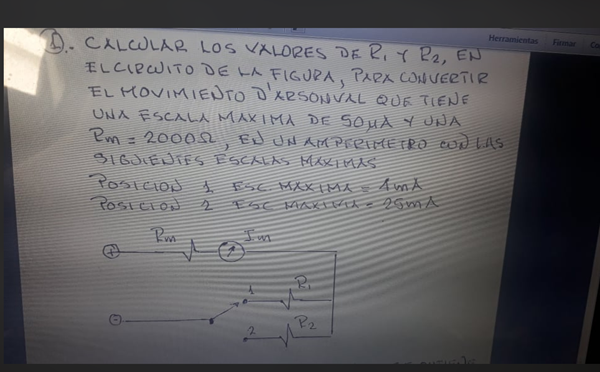 Herramientas Firmar
①. CALCULAR LOS VALORES DE R1 Y R2, EN
EL CIRCUITO DE LA FIGURA, PARA CONVERTIR
EL MOVIMIENTO D'ARSONVAL QUE TIENE
UNA ESCALA MAXIMA DE 50μA Y UNA
Rm = 2000Ω, EN UN AMPERIMETRO CON LAS
SIGUIENTES ESCALAS MAXIMAS
POSICION 1 ESC. MAXIMA = 4mA
POSICION 2 ESC. MAXIMA = 25mA
Rm Im
+
1 R1
-
2 R2